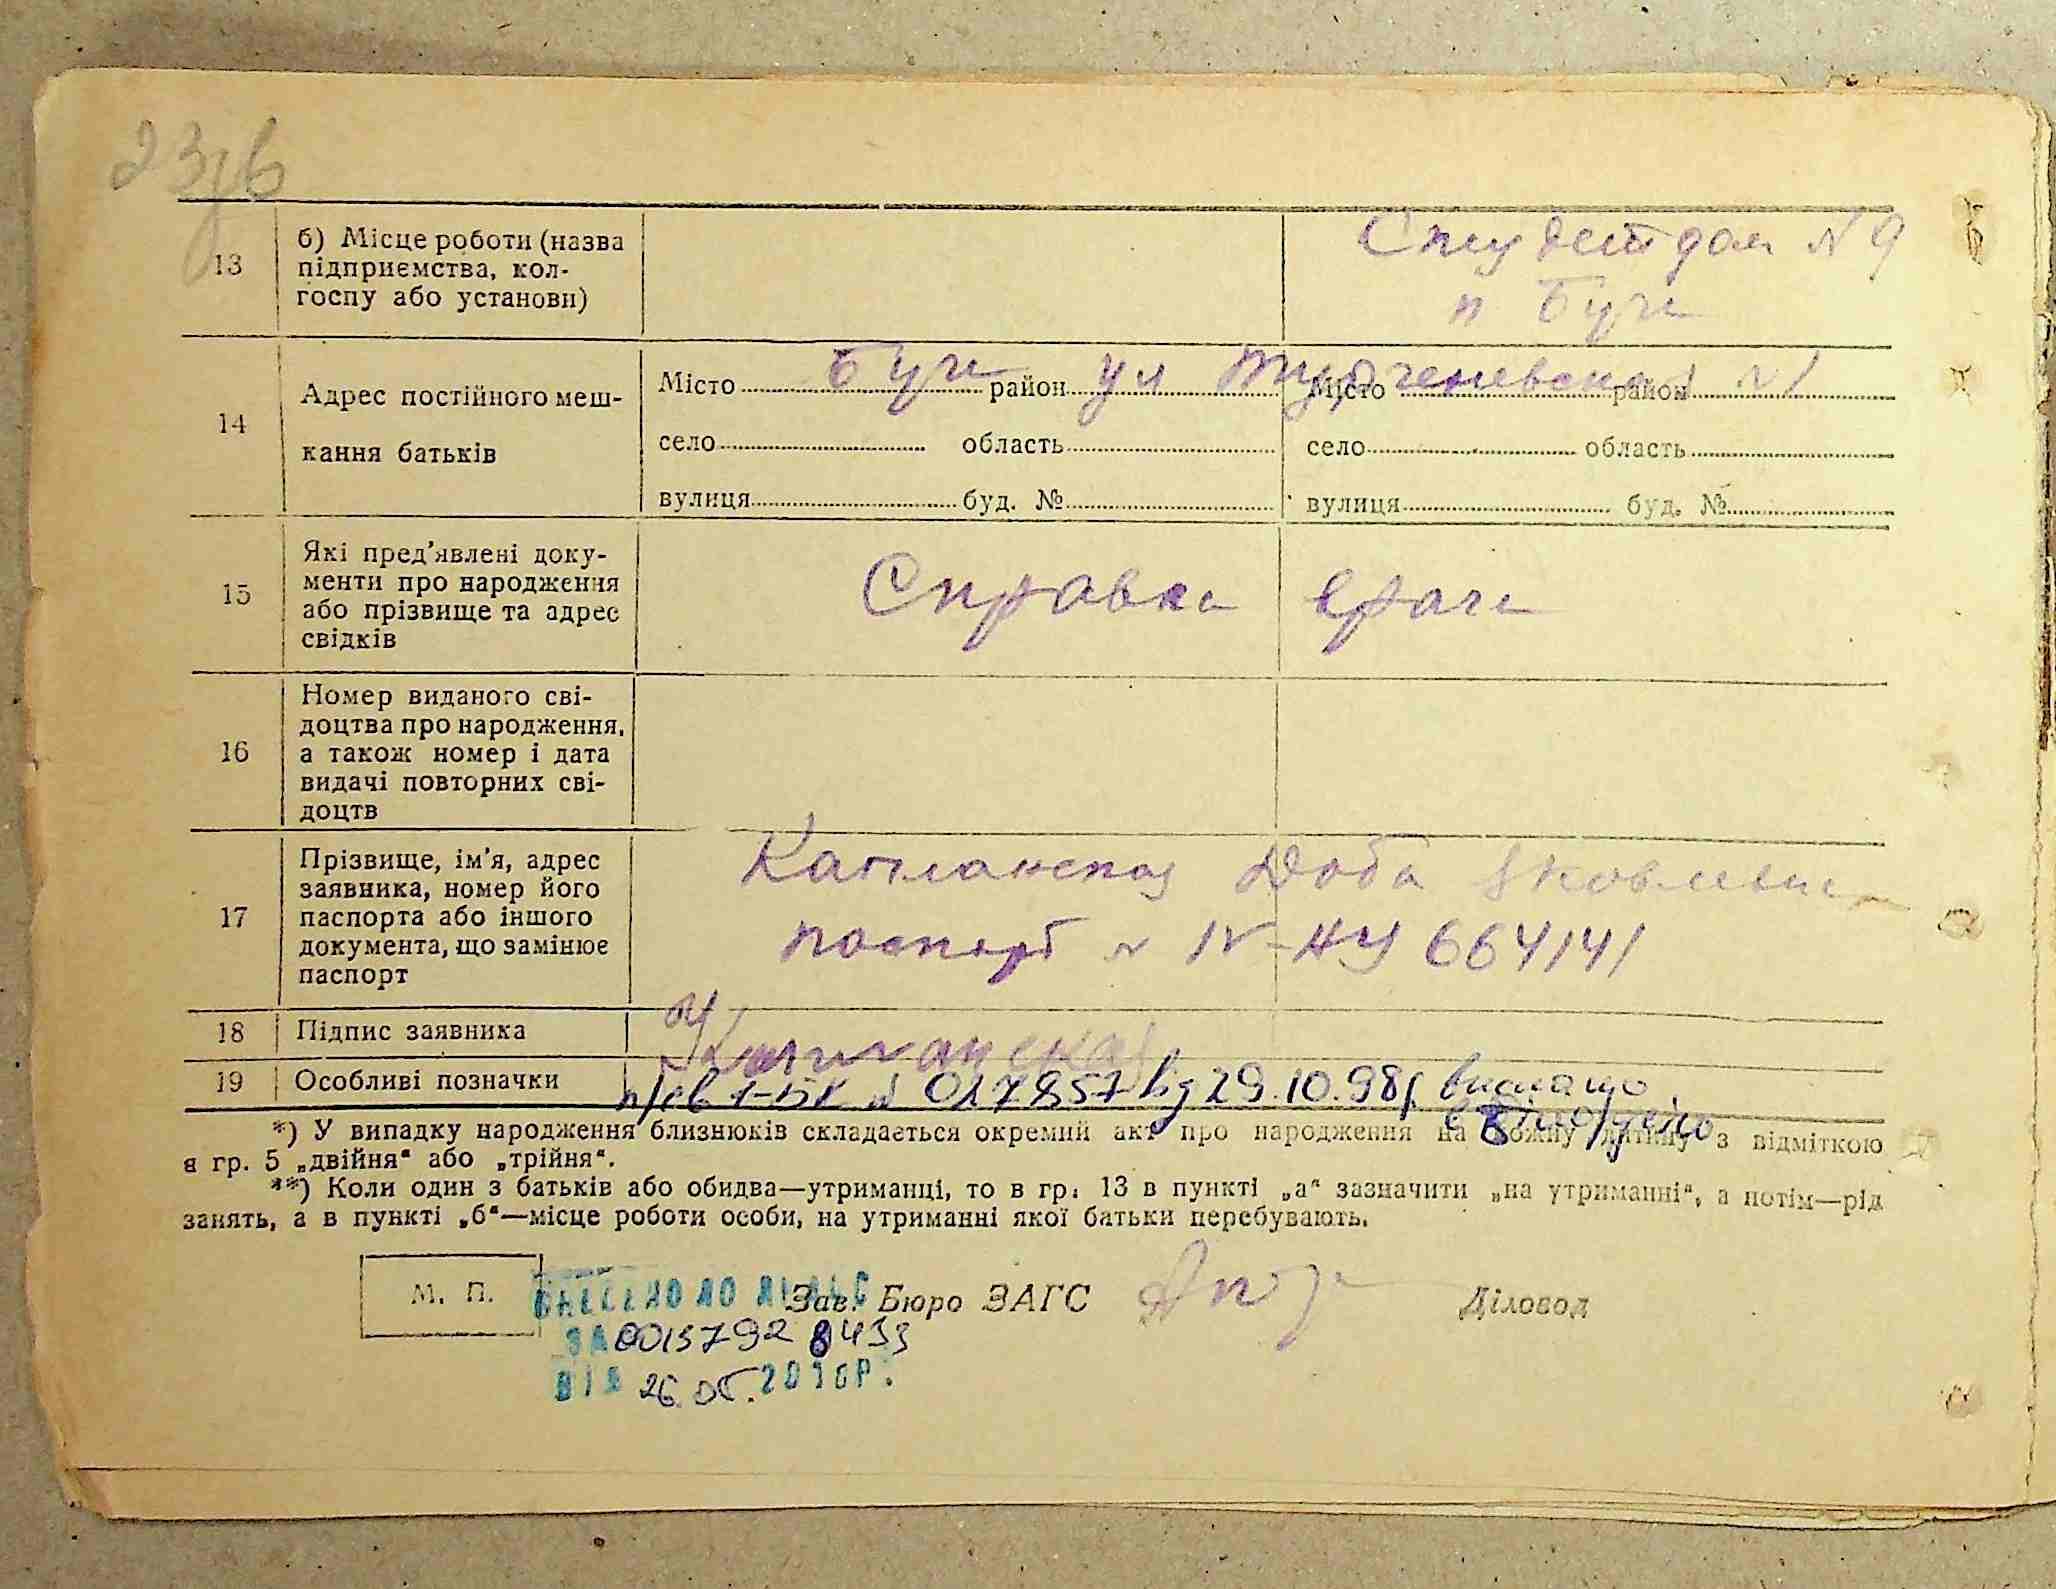 23/в
13 б) Місце роботи (назва
підприємства, кол-
госпу або установи)
Студентдом N 9
п Буча
14 Адрес постійного меш-
кання батьків
Місто Буча район ул N 1 Місто район
село область село область
вулиця буд. № вулиця буд. №
15 Які пред'явлені доку-
менти про народження
або прізвище та адрес
свідків
Справка врача
16 Номер виданого сві-
доцтва про народження,
а також номер і дата
видачі повторних сві-
доцтв
17 Прізвище, ім'я, адрес
заявника, номер його
паспорта або іншого
документа, що замінює
паспорт
Капланская Доба Яковлевна
паспорт N IV-НУ 664141
18 Підпис заявника
Капланская
19 Особливі позначки
п/св 1-БК № 017857 від 29.10.98р
*) У випадку народження близнюків складається окремий акт про народження на кожну дитину з відміткою
в гр. 5 „двійня“ або „трійня“.
**) Коли один з батьків або обидва—утриманці, то в гр. 13 в пункті „а“ зазначити „на утриманні“, а потім—рід
занять, а в пункті „б“—місце роботи особи, на утриманні якої батьки перебувають.
М. П. ВНЕСЕНО ДО Зав. Бюро ЗАГС Діловод
ЗА 0015792 8433
ВІД 26.05.2010Р.